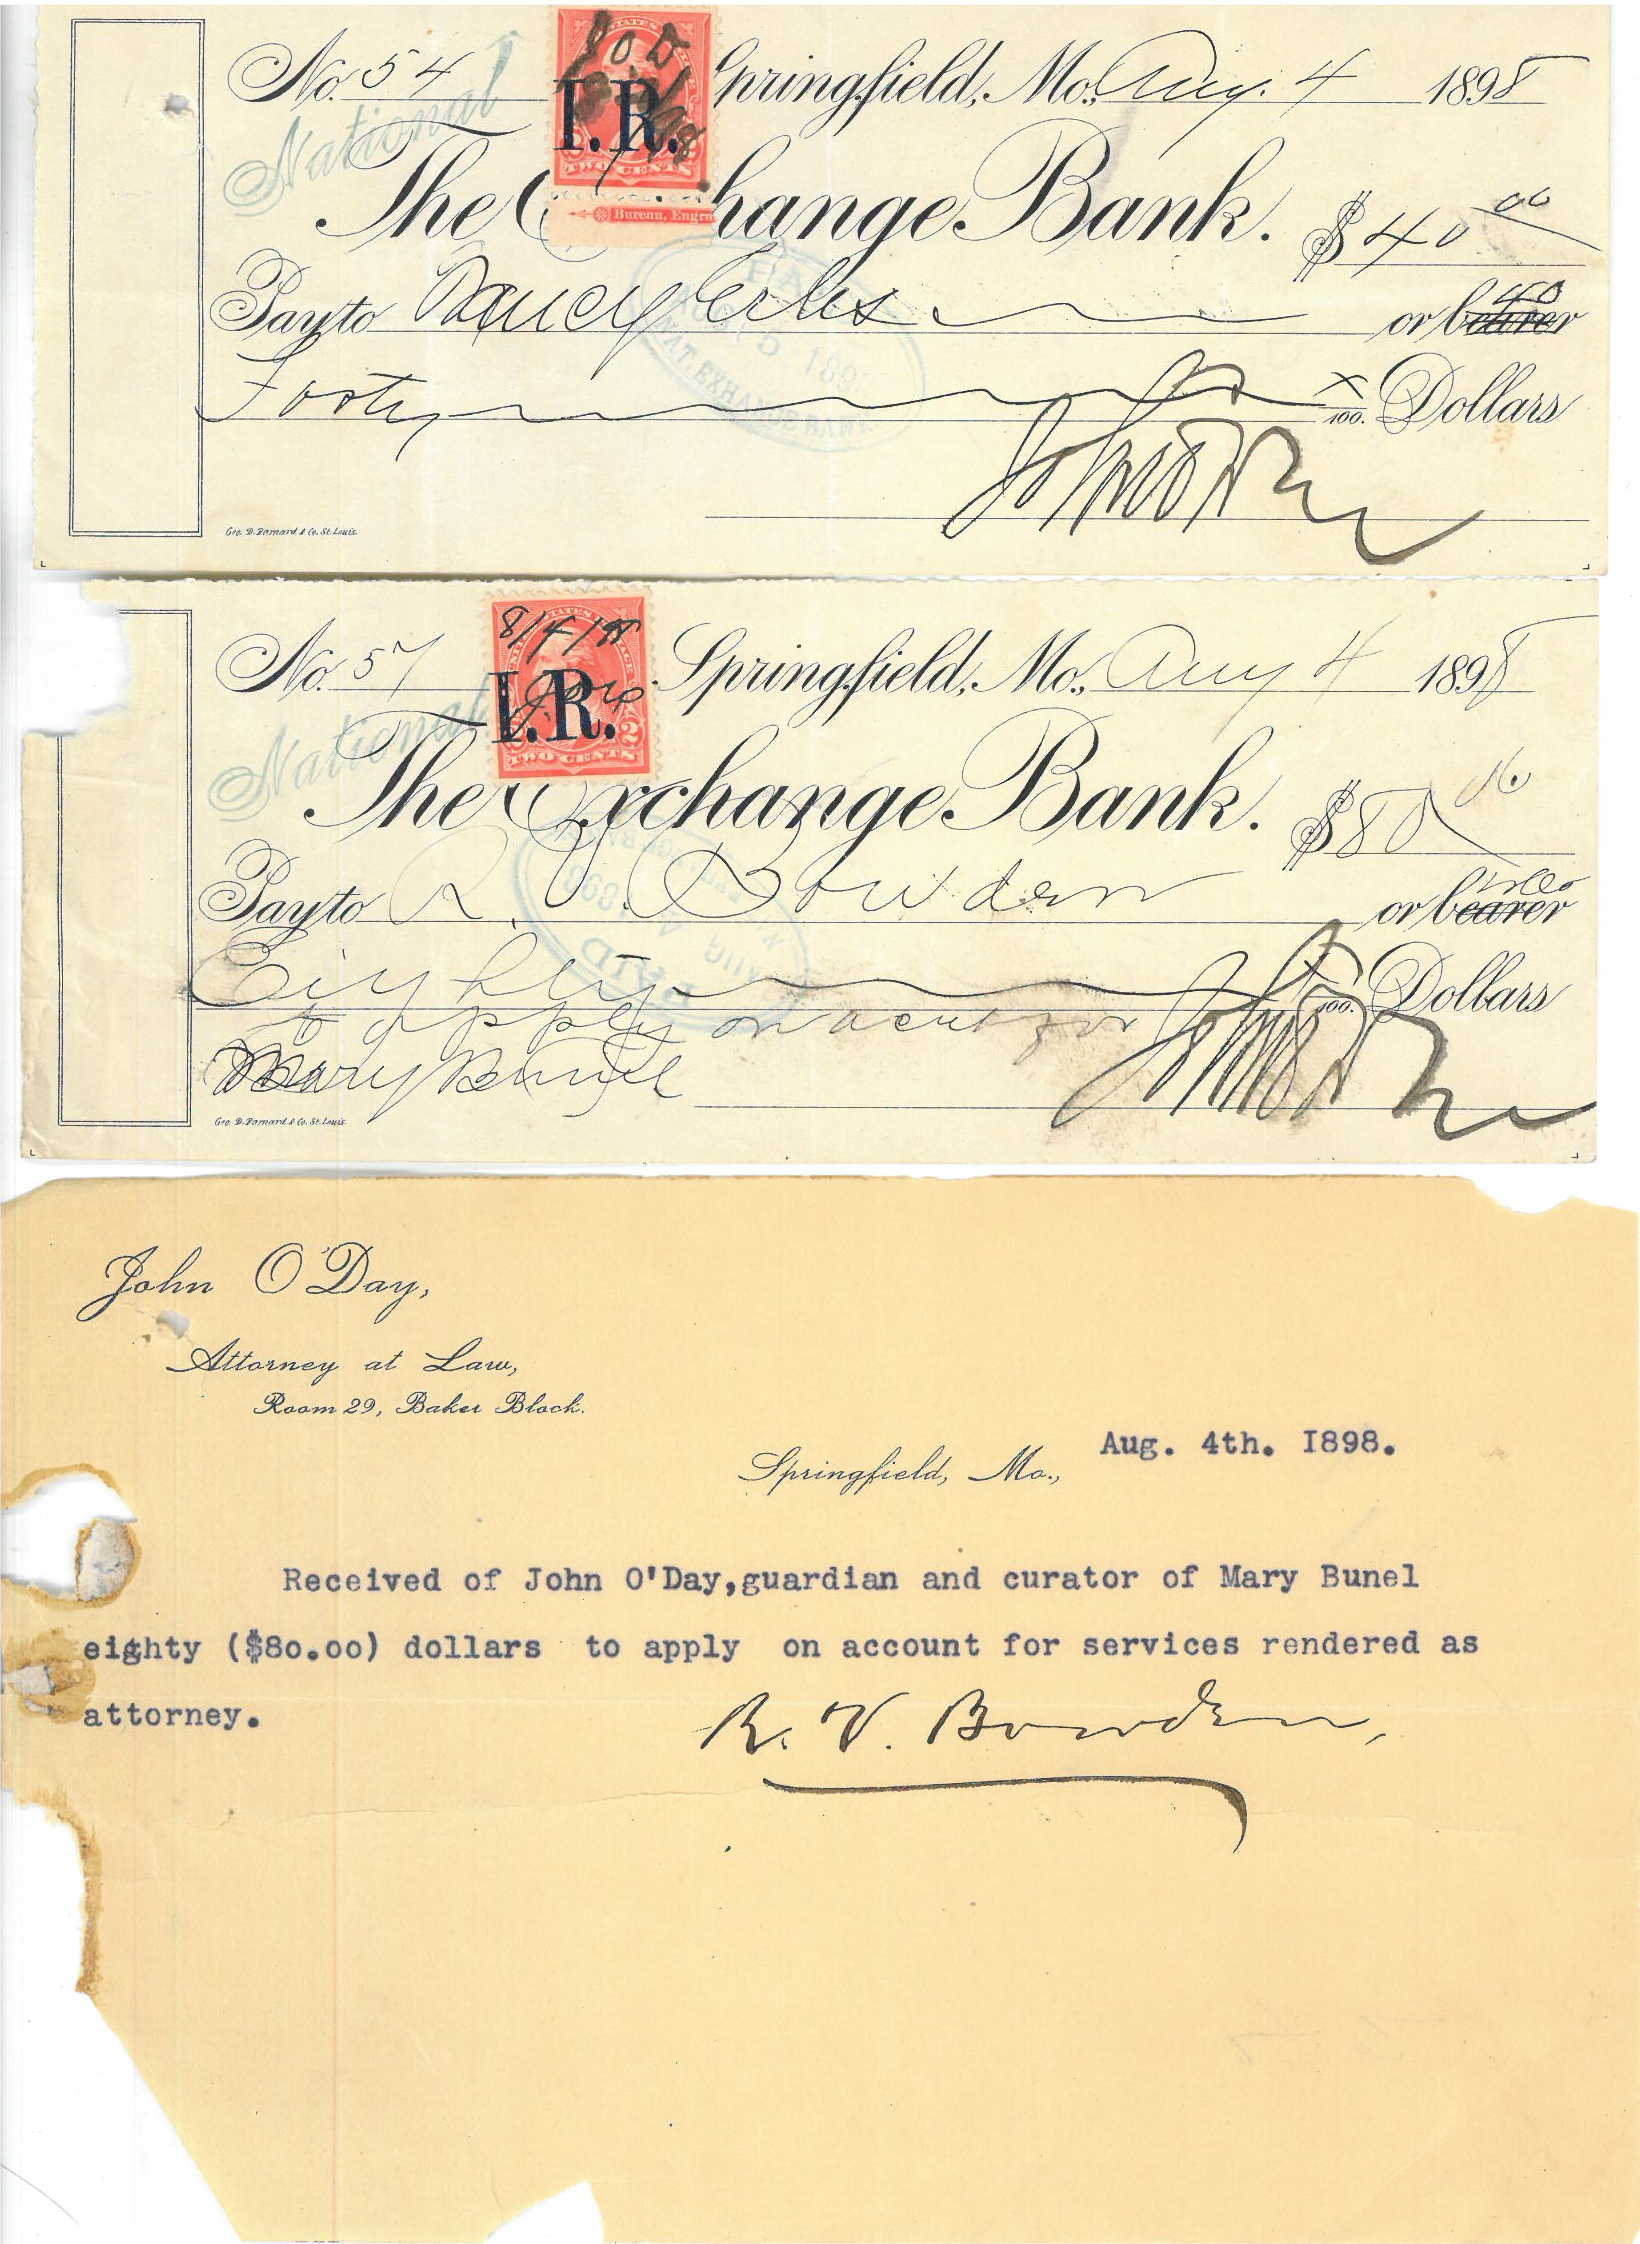 No. 54 Springfield, Mo., Aug. 4 1898
National
The Exchange Bank.
I.R.
TWO CENTS
Bureau, Engra
$40 00
Pay to Nancy or bearer 40
Forty x/100. Dollars
NAT. EXHANGE BANK
Geo. D. Barnard & Co. St. Louis.
No. 57 Springfield, Mo., Aug 4 1898
8/4/98
I.R.
TWO CENTS
National
The Exchange Bank.
$80 00
Pay to R. V. Bowden or bearer
Eighty 100. Dollars
to apply on acct for
Mary Bunel
Geo. D. Barnard & Co. St. Louis
John O'Day,
Attorney at Law,
Room 29, Baker Block.
Springfield, Mo., Aug. 4th. I898.
Received of John O'Day,guardian and curator of Mary Bunel
eighty ($80.00) dollars to apply on account for services rendered as
attorney.
R. V. Bowden,